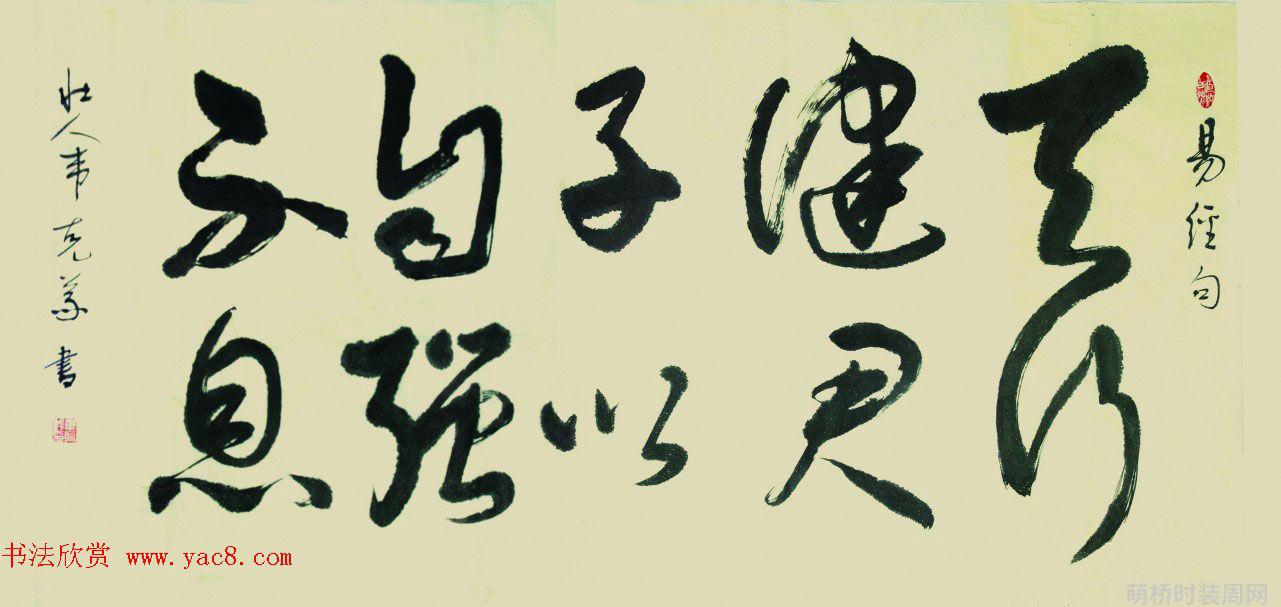 易经句
天行
健君
子以
自强
不息
壮人韦克义書
书法欣赏 www.yac8.com
萌桥时装周网